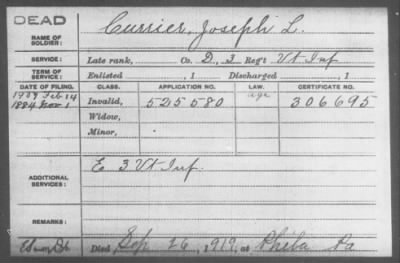 DEAD
NAME OF SOLDIER: Currier, Joseph L.
SERVICE: Late rank, Co. D, 3 Reg't Vt Inf
TERM OF SERVICE: Enlisted , 1 Discharged , 1
DATE OF FILING. CLASS. APPLICATION NO. LAW. CERTIFICATE NO.
1907 Feb 14 age
1884 Nov 1 Invalid, 525580 306695
Widow,
Minor,
ADDITIONAL SERVICES: E 3 Vt Inf.
REMARKS:
Died Sep 26, 1917, at Phila Pa